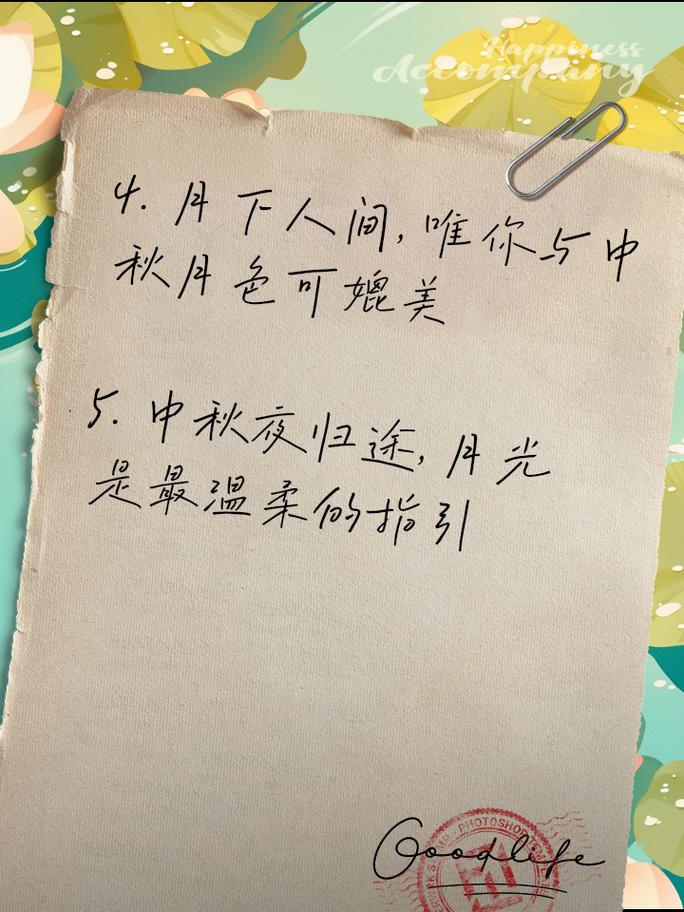 Happiness
Accompany
4. 月下人间,唯你与中
秋月色可媲美
5. 中秋夜归途,月光
是最温柔的指引
PHOTOSHOP
Goodlife